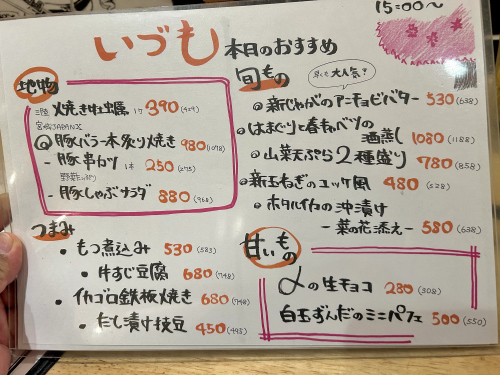 15:00〜
いづも 本日のおすすめ
地物
三陸 焼き牡蠣 1ケ 390 (429)
宮城JAPAN X
◎豚バラ一本炙り焼き 980 (1078)
- 豚串カツ 1本 250 (275)
野菜たっぷり
- 豚しゃぶサラダ 880 (968)
つまみ
・もつ煮込み 530 (583)
・牛すじ豆腐 680 (748)
・イカゴロ鉄板焼き 680 (748)
・だし漬け枝豆 450 (495)
旬もの
早くも大人気!
◎新じゃがのアンチョビバター 530 (638)
◎はまぐりと春キャベツの
酒蒸し 1080 (1188)
◎山菜天ぷら2種盛り 780 (858)
◎新玉ねぎのユッケ風 480 (528)
◎ホタルイカの沖漬け
-菜の花添え- 580 (638)
甘いもの
〆の生チョコ 280 (308)
白玉ずんだのミニパフェ 500 (550)